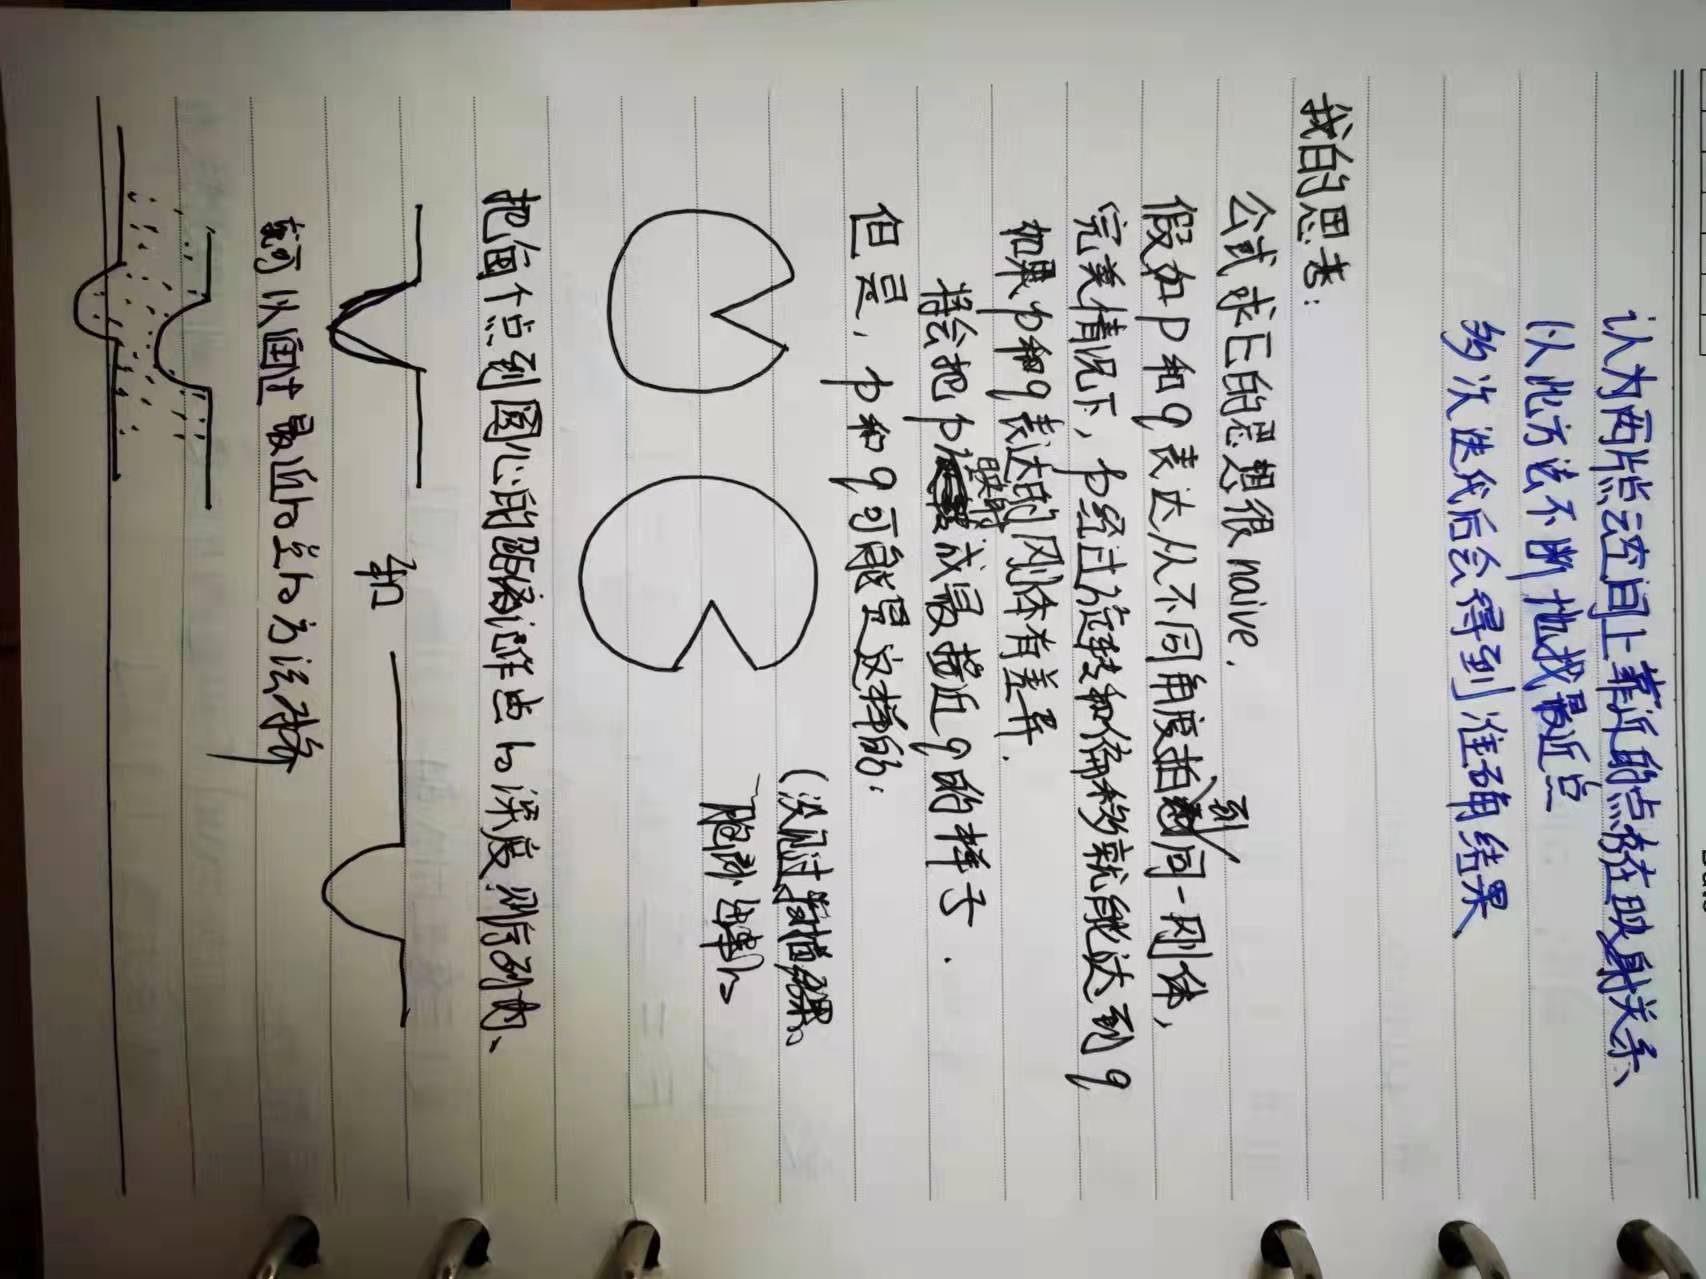 认为两片点云空间上靠近的点存在映射关系、
以此方法不断地找最近点
多次迭代后会得到准确结果、
我的思考:
公式求E的思想很naive.
假如p和q表达从不同角度拍到同一刚体,
完美情况下, p经过旋转和偏移就能达到q
如果p和q表达的刚体有差异.
将会把p映射成最接近q的样子.
但是, p和q可能是这样的:
(没见过扫描结果、
出来的
把每个点到圆心的距离记作点的深度, 则序列为、
和
就可以通过最近的点的方法对齐